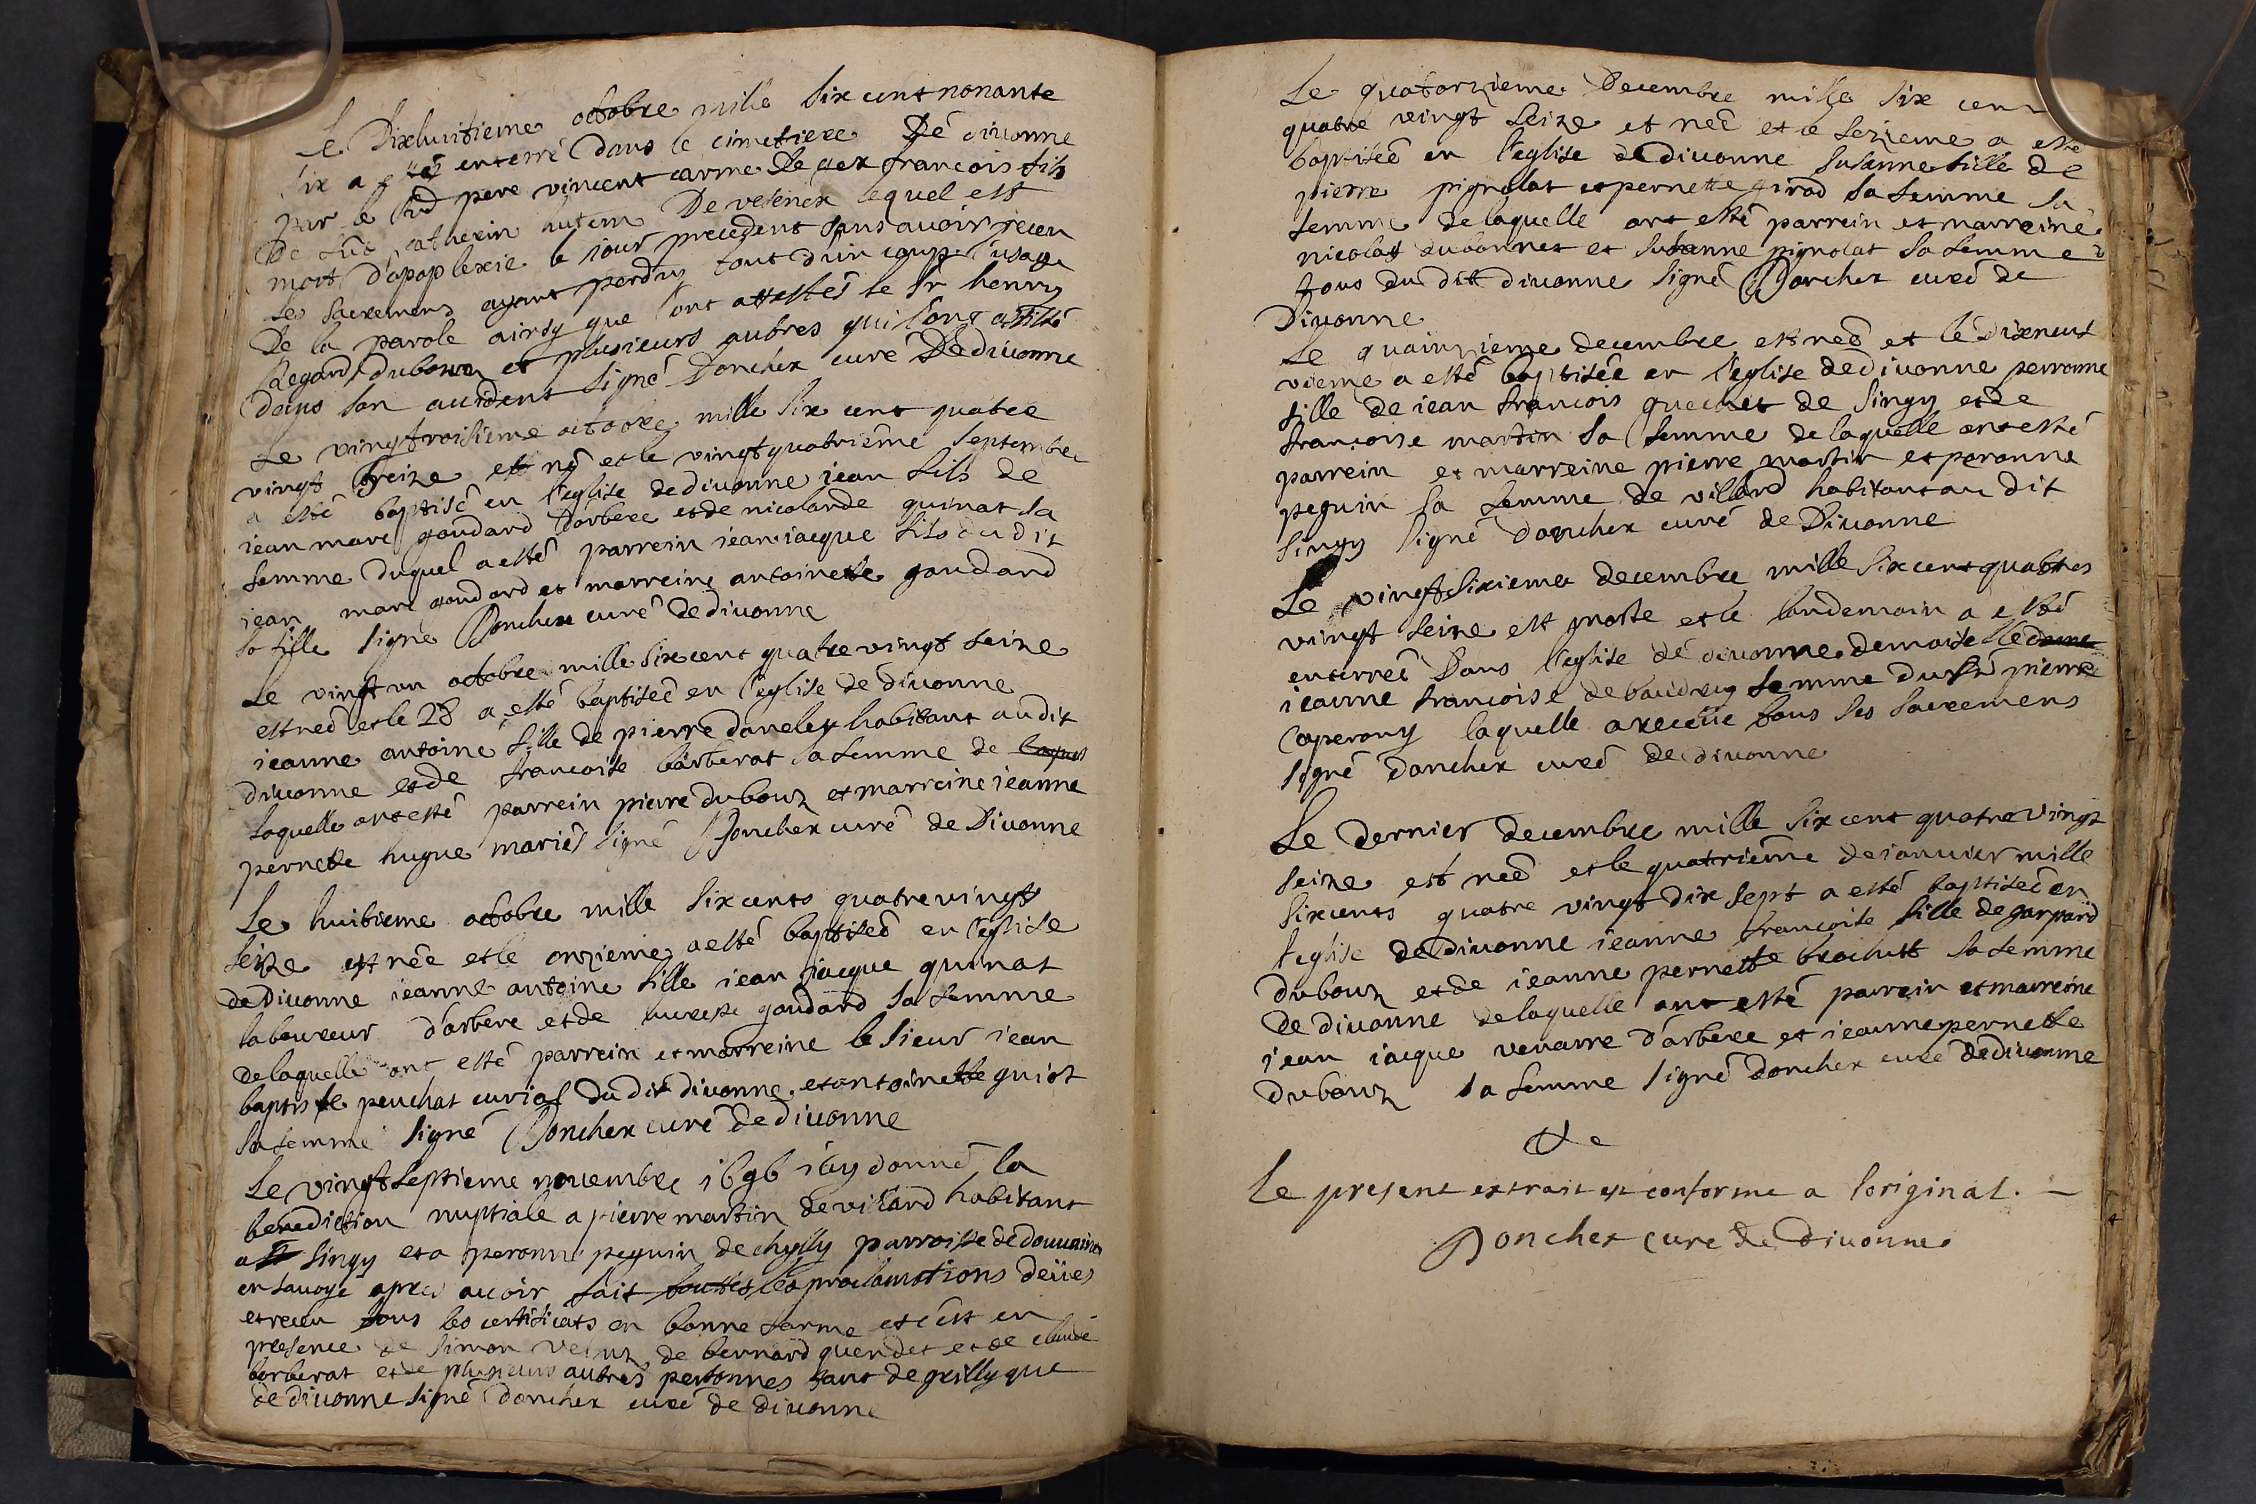 Le Dixhuitieme octobre mille six cent nonante
six a esté enterré dans le cimetiere De divonne
par le sud pere vincent carme De gex francois fils
De catherin De vesenex lequel est
mort d'apoplexie le jour precedent sans avoir receu
les sacremens ayant perdu tout d'un coup l'usage
De la parole ainsy que l'ont attesté le Sr henry
Regard dubourn et plusieurs autres qui l'ont assisté
dans son accident signé Doncher curé De divonne
Le vingtroisieme octobre mille six cent quatre
vingt treize est né et le vingtquatriême septembre
a esté baptisé en l'eglise de divonne jean fils de
jean marc gaudard d'arbere et de nicolarde quinat sa
femme duquel a esté parrein jean jacque fils du dit
jean marc gaudard et marreine antoinette gaudard
sa fille signé Doncher curé de divonne
Le vingt un octobre mille six cent quatre vingt seize
est neé et le 28 a esté baptiseé en l'eglise de divonne
jeanne antoine fille de pierre habitant au dit
divonne et de francoise barberat sa femme de
laquelle ont esté parrein pierre dubouz et marreine jeanne
pernette hugue mariés signé Doncher curé de Divonne
Le huitieme octobre mille six cents quatre vingt
seize est née et le onzieme a esté baptiseé en l'eglise
de Divonne jeanne antoine fille jean jacque quinat
laboureur d'arbere et de gaudard sa femme
de laquelle ont esté parrein et marreine le sieur jean
baptiste peuchat curial du dit divonne et antoinette guiot
sa femme signé Doncher curé de Divonne
Le vingt septieme novembre 1696 j'ay donné la
benediction nuptiale a pierre martin de villard habitant
a singy et a peronne peguin de chylly parroisse de douvaines
en savoye apres avoir fait toutes les proclamations deües
et receu tous les certificats en bonne forme et c'est en
presence de simon de bernard quendet et de claude
borberat et de plusieurs autres personnes tant de grilly que
de divonne signé Doncher curé de divonne
Le quatorzieme Decembre mille six cent
quatre vingt seize et neé et le sezieme a esté
baptiseé en l'eglise de divonne susanne fille de
pierre pignolat et pernette girod sa femme sa
femme de laquelle ont esté parrein et marreine
nicolas dubonnet et susanne pignolat sa femme
tous du dit divonne signé Doncher curé de
Divonne
Le quainzieme decembre est neé et le dixneuf
vieme a esté baptisée en l'eglise de divonne perronne
fille de jean francois de singy et de
francoise martin sa femme de laquelle ont esté
parrein et marreine pierre martin et peronne
peguin sa femme de villard habitant au dit
singy signé Doncher curé de Divonne
Le vingtsixieme decembre mille six cent quatres
vingt seize est morte et le landemain a esté
enterreé Dans l'eglise de divonne demoiselle dame
jeanne francoise de baudrey femme du Sr pierre
Caperony laquelle a receüe tous ses sacremens
signé doncher curé de divonne
Le dernier decembre mille six cent quatre vingt
seize est neé et le quatriême de janvier mille
six cents quatre vingt dix sept a esté baptiseé en
l'eglise de divonne jeanne francoise fille de gaspard
dubouz et de jeanne pernette brachutt sa femme
de divonne de laquelle ont esté parrein et marreine
jean jacque venarre d'arbere et jeanne pernette
dubouz sa femme signé doncher curé de divonne
Le present extrait est conforme a loriginal. —
Doncher Curé de Divonne